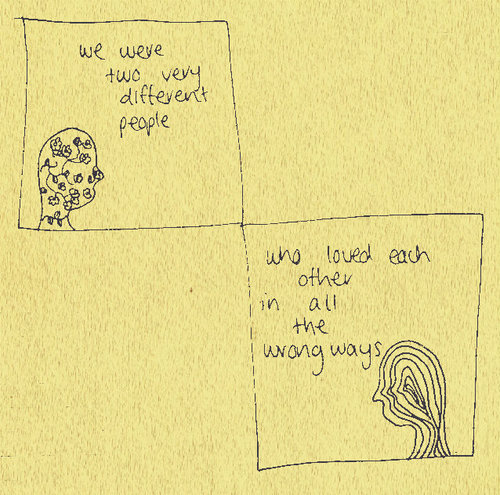 we were
two very
different
people
who loved each
other
in all
the
wrong ways